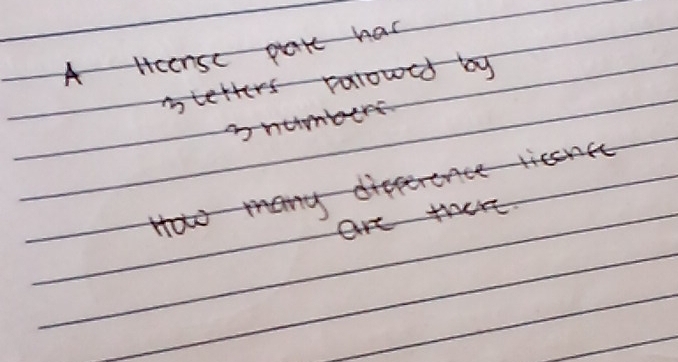 A license plate has
3 letters followed by
3 numbers.
How many difference license
are there.